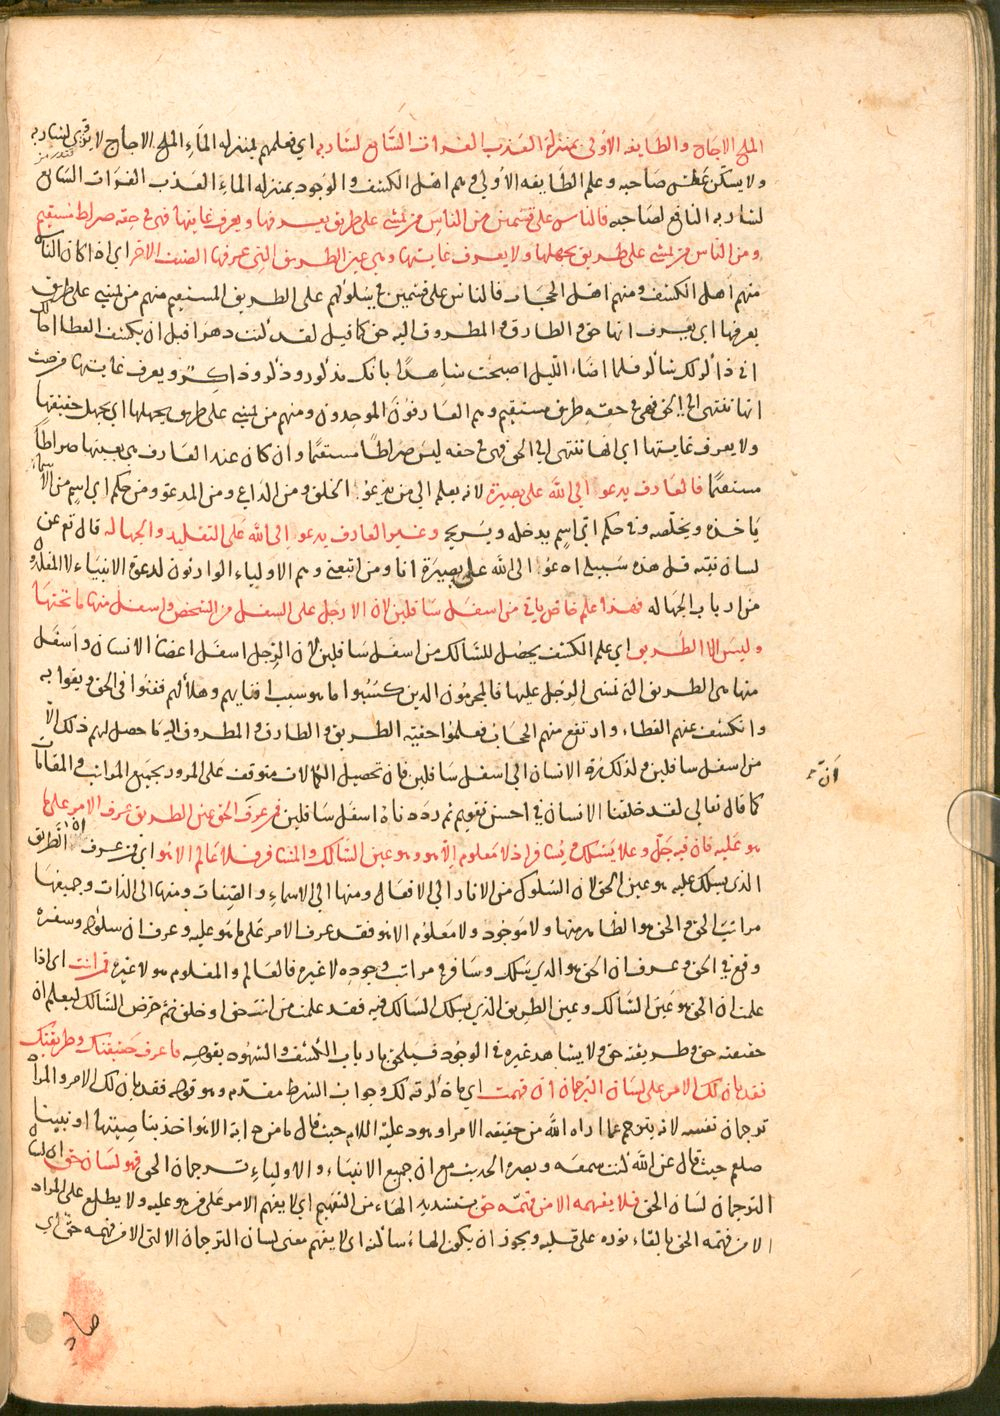 الملح الاجاج والطايفه الاولى بمنزلة العذب الفرات السائغ لشاربه اى فعلمهم بمنزله الماء الملح الاجاج لا يروى لشاربه
ولا يسكن عطش صاحبه وعلم الطايفه الاولى وهم اهل الكشف والوجود بمنزله الماء العذب الفرات السائغ
لشاربه النافع لصاحبه فالناس على قسمين من الناس من يمشى على طريق يعرفها ويعرف غايتها فهى فى حقه صراط مستقيم
ومن الناس من يمشى على طريق يجهلها ولا يعرف غايتها وهى عين الطريق التى عرفها الصنف الاخر اى اذا كان الناس
منهم اهل الكشف ومنهم اهل الحجاب فالناس على قسمين فى سلوكهم على الطريق المستقيم منهم من يمشى على طريق
يعرفها اى يعرف انها حق والطارق والمطروق اليه حق كما قيل لقد كنت دهرا قبل ان يكشف الغطا اخالك
انى ذاكر لك شاكر فلما اضاء الليل اصبحت شاهدا بانك مذكور وذكر وذاكر ويعرف غايتها من حيث
انها تنتهى الى الحق فهى فى حقه طريق مستقيم وهم العارفون الموحدون ومنهم من يمشى على طريق يجهلها اى يجهل حقيقتها
ولا يعرف غايتها اى انها تنتهى الى الحق فهى فى حقه ليس صراطا مستقيما وان كان عند العارف هى بعينها صراطا
مستقيما فالعارف يدعو الى الله على بصيرة لانه يعلم الى من يدعو الخلق ومن الداعى ومن المدعو ومن حكم اى اسم من الاسماء
ياخذه ويخلصه وفى حكم اى اسم يدخله ويسريح وغير العارف يدعو الى الله على التقليد والجهاله قال تع عن
لسان نبيه قل هذه سبيلى ادعو الى الله على بصيرة انا ومن اتبعنى وهم الاولياء الوارثون لدعوة الانبياء لا المقلدون
من ارباب الجهاله فهذا علم خاص ياتى من اسفل سافلين لان الارجل هى السفل من الشخص واسفل منها ما تحتها
وليس الا الطريق اى علم الكشف يحصل للسالك من اسفل سافلين لان الرجل اسفل اعضا الانسان واسفل
منها هى الطريق التى تمشى الرجل عليها فالمجرمون الذين كسبوا ما هو سبب افنايهم وهلاكهم ففنوا فى الحق وبقوا به
وانكشف عنهم الغطاء وارتفع منهم الحجاب فعلموا حقيه الطريق والطارق والمطروق اليه ما حصل لهم ذلك الا
من اسفل سافلين ولذلك رد الانسان الى اسفل سافلين فان تحصيل الكمالات متوقف على المرور بجميع المراتب والمقامات
كما قال تعالى لقد خلقنا الانسان فى احسن تقويم ثم رددناه اسفل سافلين فمن عرف الحق عين الطريق عرف الامر على ما
هو عليه فان فيه جل وعلا يسلك ويسافر اذ لا معلوم الا هو وهو عين السالك والمسافر فلا عالم الا هو اى من عرف ان الطريق
الذى يسلك عليه هو عين الحق لان السلوك من الاثار الى الافعال ومنها الى الاسماء والصفات ومنها الى الذات وجميعها
مراتب الحق والحق هو الظاهر منها ولا موجود ولا معلوم الا هو فقد عرف الامر على ما هو عليه وعرف ان سلوكه وسفره
وقع فى الحق وعرف ان الحق هو الذى يسلك وسافر فى مراتب وجوده لا غيره فالعالم والمعلوم هو لا غيره فمن انت اى اذا
علمت ان الحق هو عين السالك وعين الطريق الذى يسلك السالك فيه فقد علمت من انت حق او خلق ثم حرض السالك ليعلم ان
حقيقته حق وطريقته حق ولا يشاهد غيره فى الوجود فيلحق بارباب الكشف والشهود بقوله فاعرف حقيقتك وطريقتك
فقد بان لك الامر على لسان الترجمان ان فهمت اى ما ذكرته لك وجواب الشرط مقدم وهو قوله فقد بان لك الامر والمراد
ترجمان نفسه لانه يترجم عما اراه الله من حقيقه الامر او هود عليه السلام حيث قال ما من دابة الا هو اخذ بناصيتها او نبينا
صلعم حيث قال عن الله كنت سمعه وبصره الحديث مع ان جميع الانبياء والاولياء ترجمان الحق فهو لسان حق اى لسان
الترجمان لسان الحق فلا يفهمه الا من فهمه حق بتشديد الهاء من التفهيم اى لا يفهم الامر على من هو عليه ولا يطلع على المراد
الا من فهمه الحق بالقاء نوره على قلبه ويجوز ان يكون الهاء ساكنه اى لا يفهم معنى لسان الترجمان الا الذى الا من فهمه حق اى
انّ